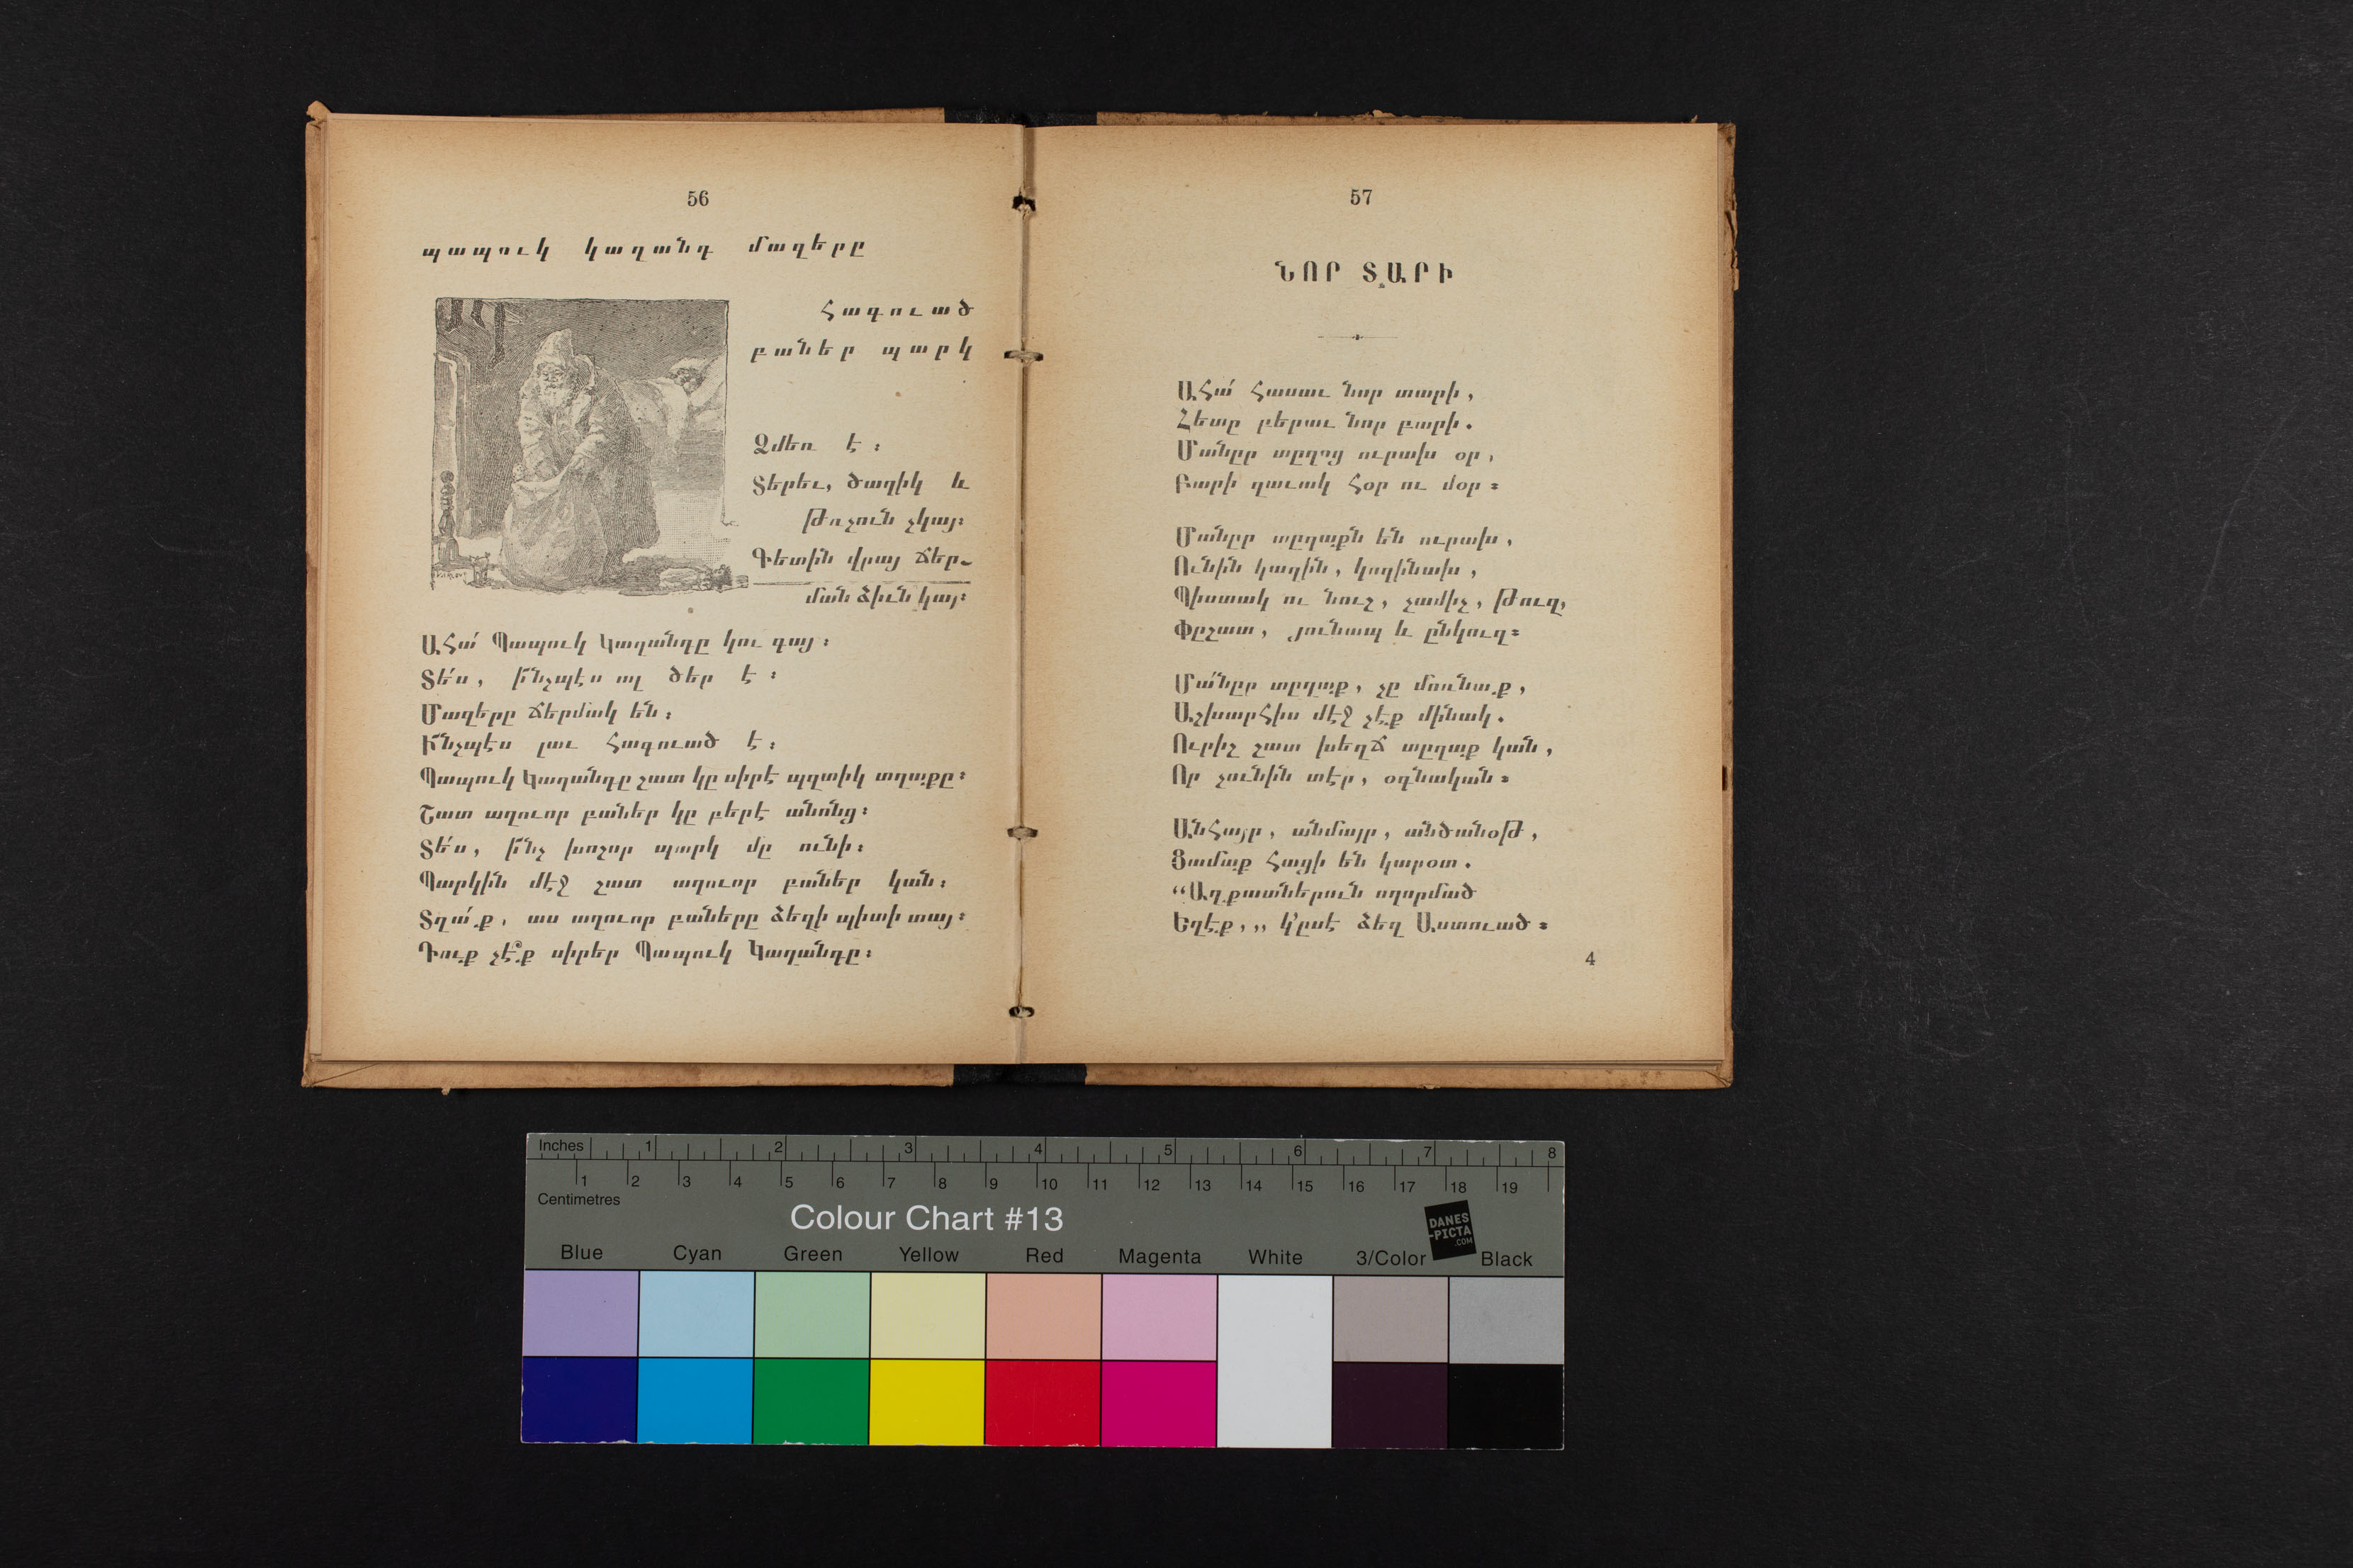 56
պապուկ կաղանդ մաղերը
հագուած
բաներ պարկ
Ձմեռ է:
Տերեւ, ծաղիկ և
թռչուն չկայ:
Գետին վրայ ճեր-
ման ձիւն կայ:
Ահա՛ Պապուկ Կաղանդը կու գայ:
Տե՛ս, ի՜նչպէս ալ ծեր է:
Մաղերը ճերմակ են:
Ի՜նչպէս լաւ հագուած է:
Պապուկ Կաղանդը շատ կը սիրէ պղտիկ տղաքը:
Շատ աղուոր բաներ կը բերէ անոնց:
Տե՛ս, ի՜նչ խոշոր պարկ մը ունի:
Պարկին մէջ շատ աղուոր բաներ կան:
Տղա՛ք, աս աղուոր բաները ձեղի պիտի տայ:
Դուք չէ՞ք սիրեր Պապուկ Կաղանդը:
57
ՆՈՐ ՏԱՐԻ
Ահա՛ հասաւ նոր տարի,
Հետը բերաւ նոր բարի.
Մանըր տըղոց ուրախ օր,
Բարի ղաւակ հօր ու մօր:
Մանըր տըղաքն են ուրախ,
Ունին կաղին, կողինախ,
Պիստակ ու նուշ, չամիչ, թուղ,
Փըշատ, յունապ և ընկուղ:
Մա՛նըր տըղաք, չը մոռնաք,
Աշխարհիս մէջ չէք մինակ.
Ուրիշ շատ խեղճ տըղաք կան,
Որ չունին տէր, օգնական:
Անհայր, անմայր, անծանօթ,
Ցամաք հացի են կարօտ.
“Աղքատներուն ողորմած
Եղէք,,, կ՚ըսէ ձեղ Աստուած:
4
Inches 1 2 3 4 5 6 7 8
1 2 3 4 5 6 7 8 9 10 11 12 13 14 15 16 17 18 19
Centimetres
Colour Chart #13
DANES
-PICTA
.COM
Blue Cyan Green Yellow Red Magenta White 3/Color Black